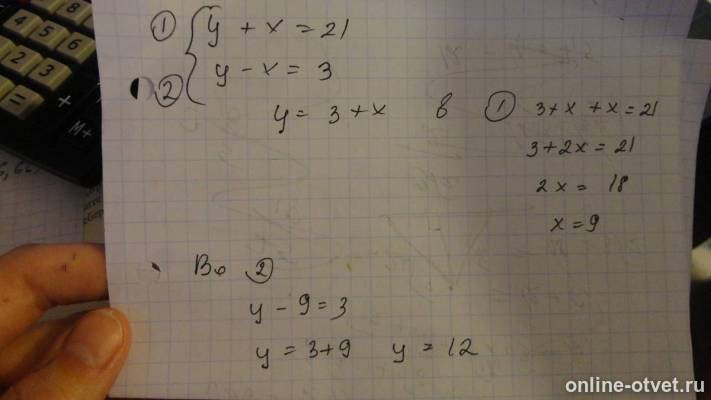 ① y + x = 21
② y - x = 3
y = 3 + x в ① 3 + x + x = 21
3 + 2x = 21
2x = 18
x = 9
Во ②
y - 9 = 3
y = 3 + 9 y = 12
8
4 5 6
2 3
= + M+
online-otvet.ru